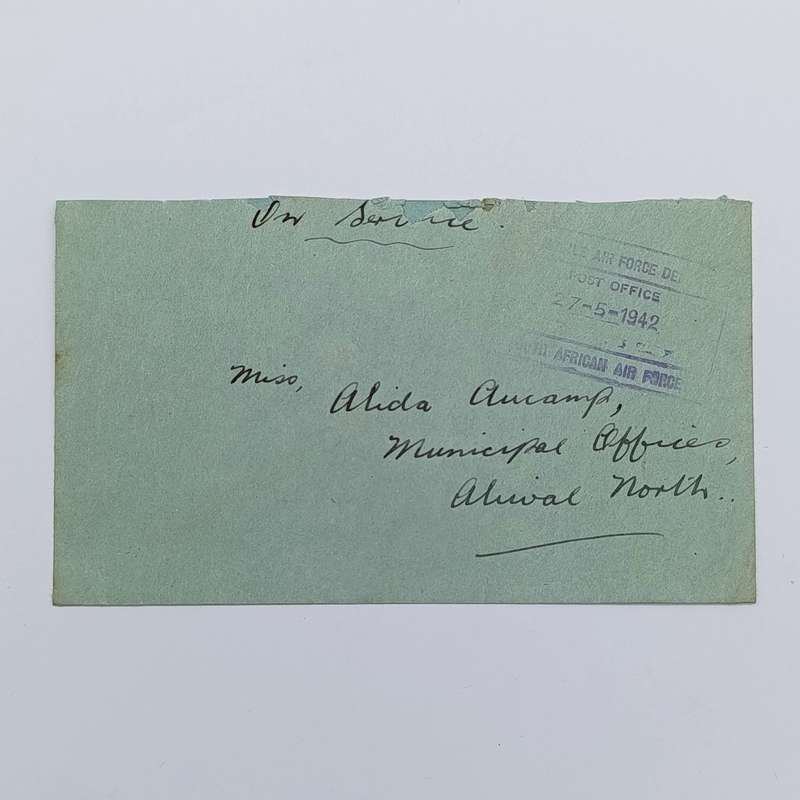 On Service.
AIR FORCE
POST OFFICE
27-5-1942
AFRICAN AIR FORCE
Miss, Alida Aucamp,
Municipal Offices,
Aliwal North..